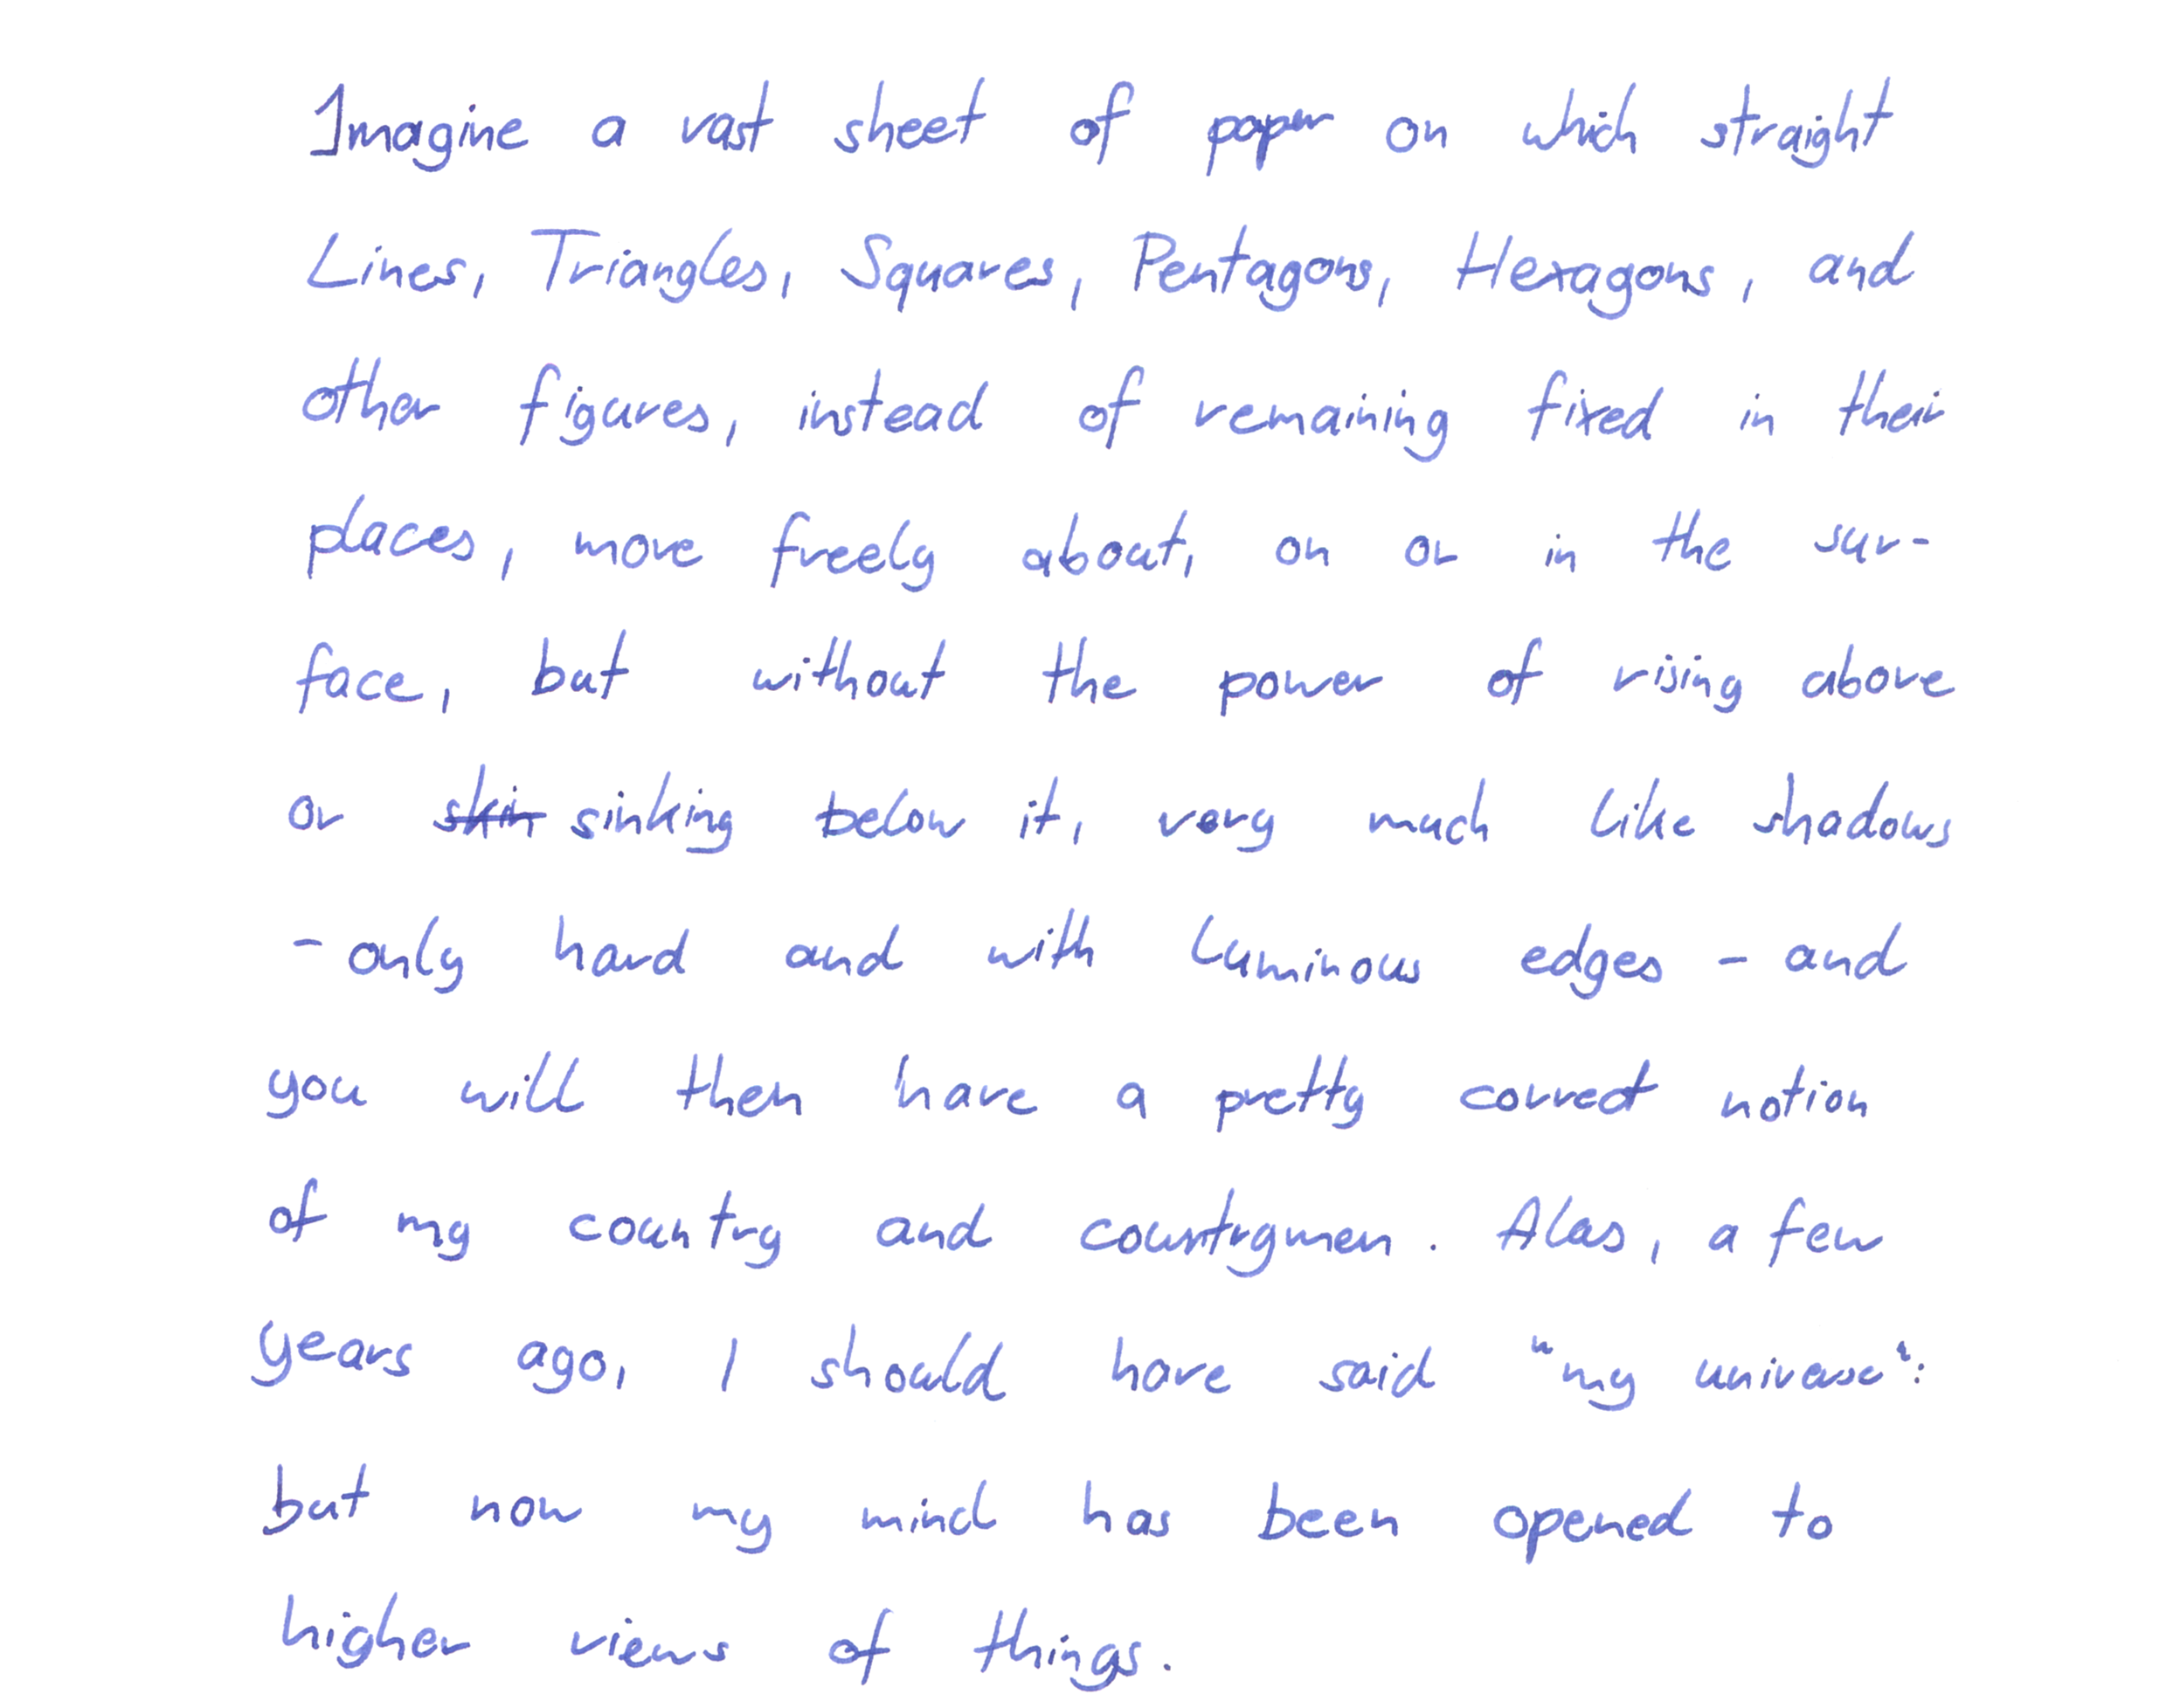 Imagine a vast sheet of paper on which straight
Lines, Triangles, Squares, Pentagons, Hexagons, and
other figures, instead of remaining fixed in their
places, move freely about, on or in the sur-
face, but without the power of rising above
or skin sinking below it, very much like shadows
- only hard and with luminous edges - and
you will then have a pretty correct notion
of my country and countrymen. Alas, a few
years ago, I should have said "my universe":
but now my mind has been opened to
higher views of things.